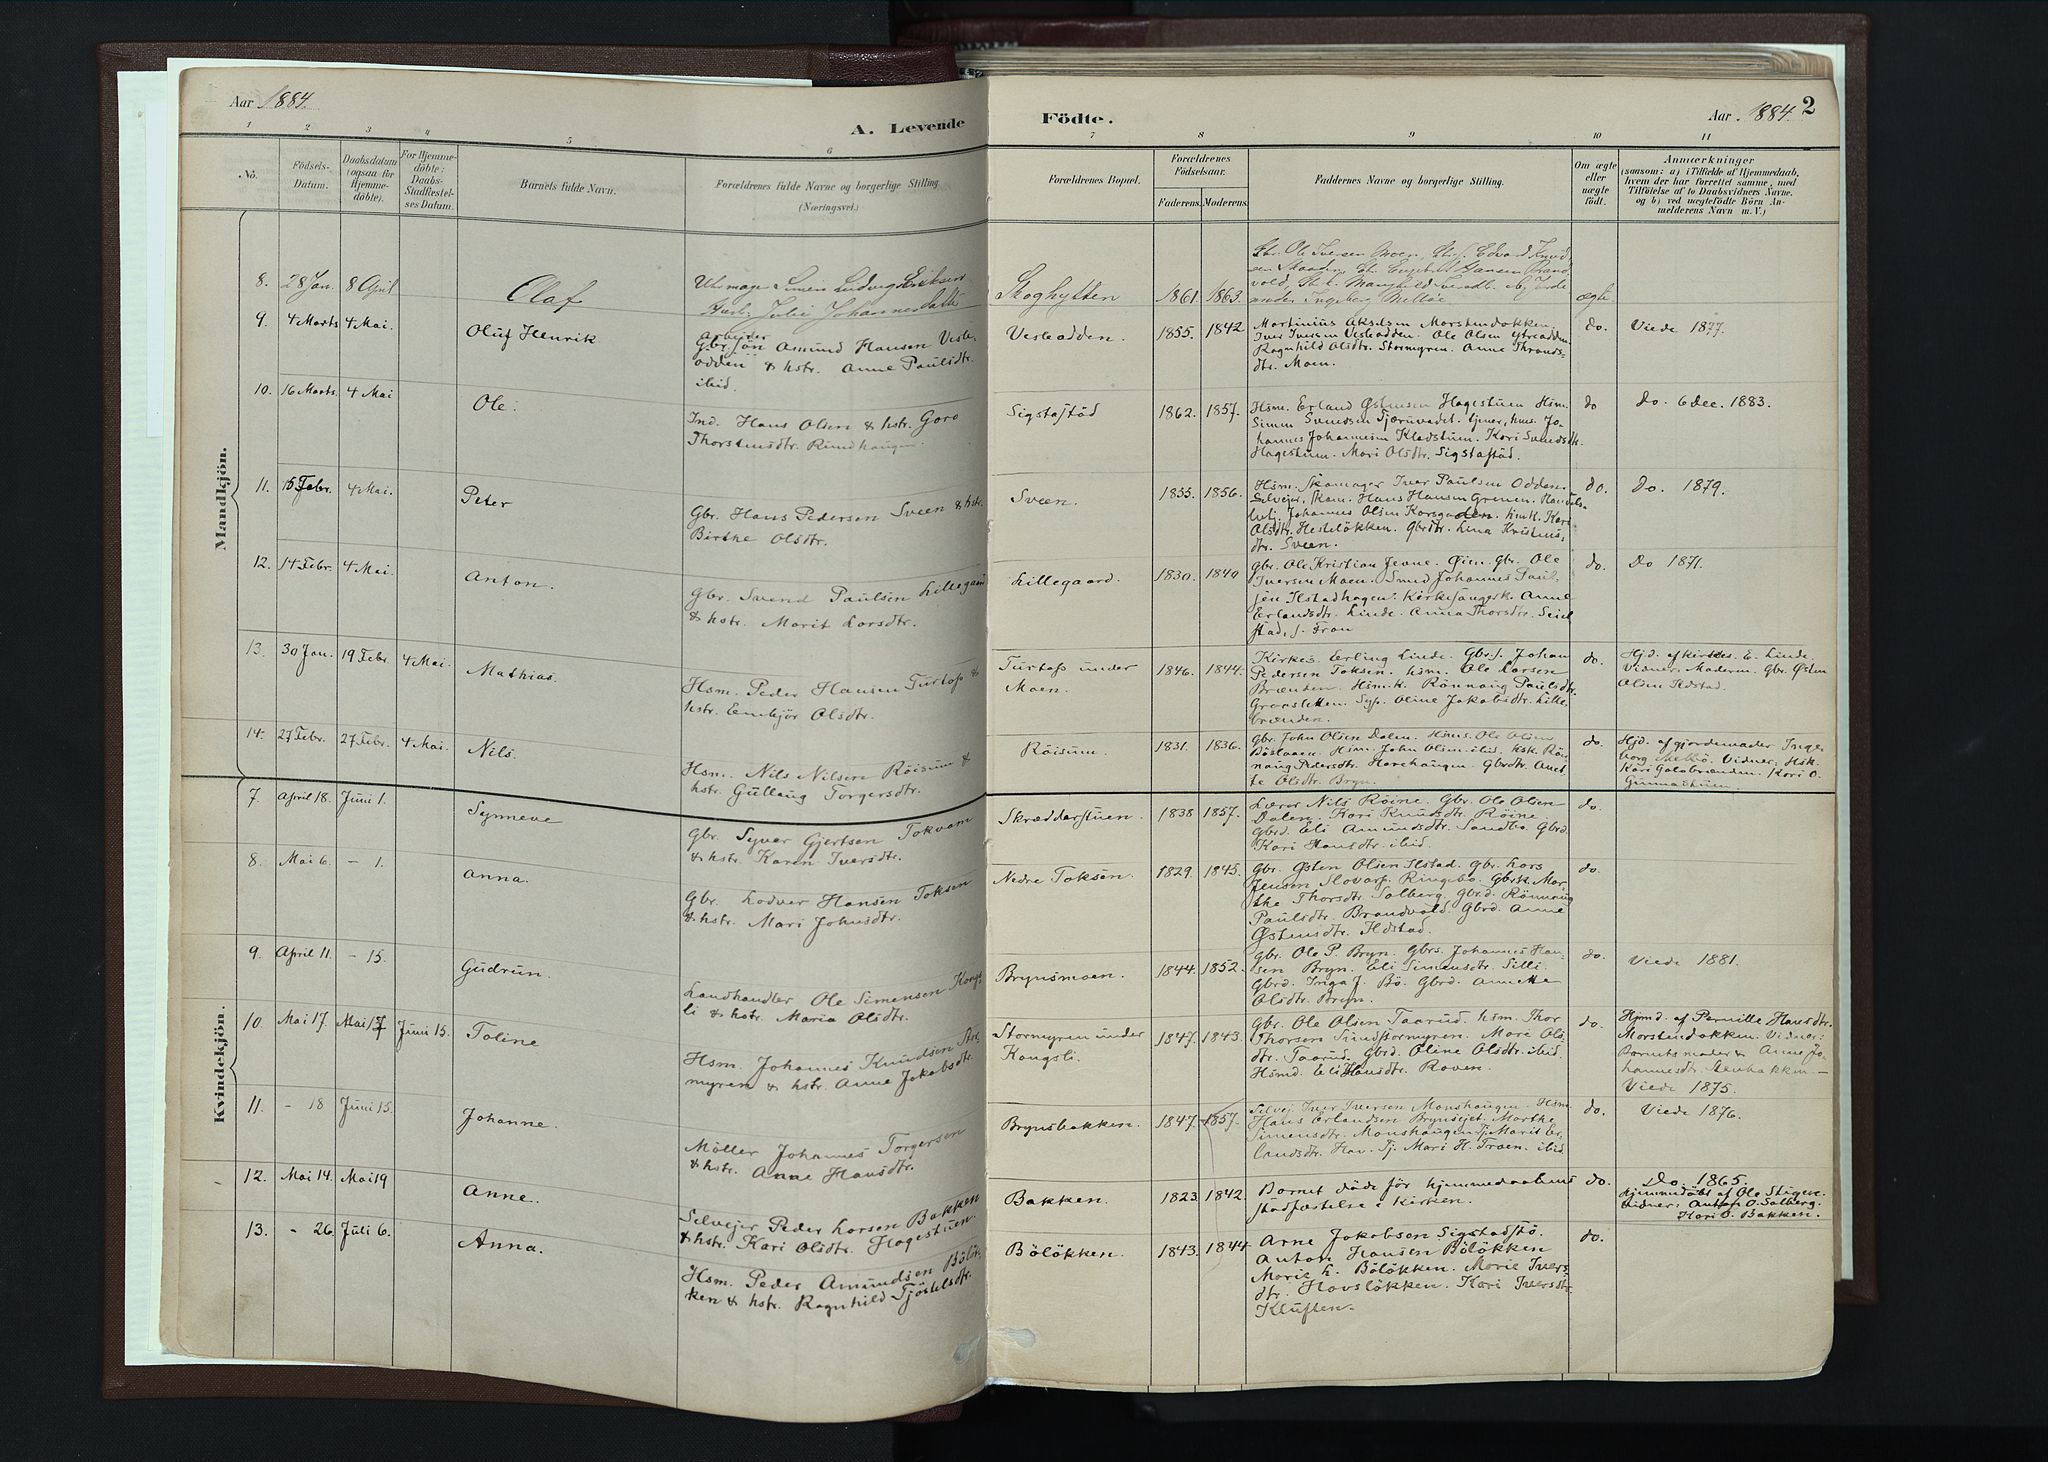 Aar 1884.
A. Levende
Födte.
Aar 1884.
2
1 2 3 4 5 6 7 8 9 10 11
No.
Födsels-
Datum.
Daabsdatum
(ogsaa for
Hjemme-
döbte).
For Hjemme-
döbte:
Daabs-
Stadfæstel-
ses Datum.
Barnets fulde Navn.
Forældrenes fulde Navne og borgerlige Stilling
(Næringsvei.)
Forældrenes Bopæl.
Forældrenes
Födselsaar.
Faderens. Moderens.
Faddernes Navne og borgerlige Stilling.
Om ægte
eller
uægte
födt.
Anmærkninger
(saasom: a) i Tilfælde af Hjemmedaab,
hvem der har forrettet samme, med
Tilföielse af to Daabsvidners Navne,
og b) ved uægtefödte Börn An-
melderens Navn m. V.)
Mandkjön.
8. 28 Jan. 8 April
Olaf
Simen Ludvig Eriksen
Julie Johannesdatter
Skoghytten
1861. 1863.
Ole Iversen Moen, Edvard
ægte
9. 4 Marts 4 Mai.
Oluf Henrik
Arbeider
Gbr. sön Amund Hansen Vesle-
odden & hstr. Anne Paulsdtr.
ibid.
Vesleodden.
1855. 1842.
Martinius Akselsen Morstendokken,
Iver Iversen Vesleodden. Ole Olsen ytreodden
Ragnhild Olsdtr. Stormyren. Anne Thronds-
dtr. Moen.
do.
Viede 1877.
10. 16 Marts. 4 Mai
Ole.
Ind. Hans Olsen & hstr. Goro
Thorstensdtr. Rundhaugen.
Sigstastöd
1862. 1857.
Hsm. Erland Östensen Hagestuen Hsm.
Simen Svendsen Tjærnvadet. tjener, hus. Jo-
hannes Johannesen Kladstuen. Kari Svendsdtr.
Hagestuen. Mari Olsdtr. Sigstastöd.
do
Do. 6 Dec. 1883.
11. 15 Febr. 4 Mai.
Peter
Gbr. Hans Pedersen Sveen & hstr.
Birthe Olsdtr.
Sveen.
1855. 1856.
Hsm. Skomager Iver Paulsen Odden.
Selveier, Hans Hansen Grenen.
Johannes Olsen Korsgaden. hmk. Kari
Olsdtr. Hestelökken. Gbrdtr. Lina Kristens-
dtr. Sveen.
do.
Do. 1879.
12. 14 Febr. 4 Mai.
Anton.
Gbr. Svend Paulsen Lillegaard
& hstr. Marit Larsdtr.
Lillegaard.
1830. 1840
Gbr. Ole Kristian Jenne. Öien. Gbr. Ole
Iversen Moen. Smed Johannes Paul-
sen Ilstadhagen. Kirkesangersk. Anne
Erlandsdtr. Linde. Anna Thorsdtr. Seiel-
stad, f. Fron
do.
Do 1871.
13. 30 Jan. 19 Febr. 4 Mai.
Mathias.
Hsm. Peder Hansen Turtop &
hstr. Embjör Olsdtr.
Turtop under
Moen.
1846. 1844.
Kirkes. Erling Linde. Gbrs. Johan
Pedersen Toksen. hsm. Ole Larsen
Brænden. Hsm.k. Rönnaug Paulsdtr.
Graasletten. Syp. Oline Jakobsdtr. Lille-
brænden.
do.
Hjd. af kirkes. E. Linde.
Vidner. Moderen. Gbr. Östen
Olsen Ilstad.
14. 27 Febr. 27 Febr. 4 Mai.
Nils.
Hsm. Nils Nilsen Röisum &
hstr. Gullaug Torgersdtr.
Röisum.
1831. 1836.
Gbr. John Olsen Dalen. Hsms. Ole Olsen
Böstuen. Hsm. John Olsen ibid. hsk. Rön-
naug Pedersdtr. Horehaugen. Gbrdtr. Anet-
te Olsdtr. Bryn.
do.
Hjd. af gjordemoder Inge-
borg Melbö. Vidner: Hsk.
Kari Galabrænden. Kari O.
Gunnastuen.
Kvindekjön.
7. April 18. Juni 1.
Synneve
Gbr. Syver Gjertsen Tokvam
& hstr. Karen Iversdtr.
Skrædderstuen.
1838 1857.
Lærer Nils Röine. Gbr. Ole Olsen
Dalen. Kari Knudsdtr. Röine
Gbrd. Eli Amundsdtr. Sandbo. Gbrd.
Kari Hansdtr. ibid.
do.
8. Mai 6. – 1.
Anna.
Gbr. Lodver Hansen Toksen
& hstr. Mari Johnsdtr.
Nedre Toksen.
1829. 1845.
Gbr. Östen Olsen Ilstad. Gbr. Lars
Jensen Slovarp. Ringebo. Gbrsk. Mar-
the Thorsdtr. Solberg. Gbrd. Rönnaug
Paulsdtr. Brandvold. Gbrd. Anne
Östensdtr. Ilstad.
do.
9. April 11. – 15.
Gudrun.
Landhandler Ole Simensen Kongs-
li & hstr. Maria Olsdtr.
Brynsmoen.
1844. 1852.
Gbr. Ole P. Bryn. Gbrs. Johannes Han-
sen Bryn. Eli Simensdtr. Silli.
Gbrd. Inga J. Bö. Gbrd. Annette
Olsdtr. Bryn.
do.
Viede 1881.
10. Mai 17. Mai 17 Juni 15.
Toline
Hsm. Johannes Knudsen Stor-
myren & hstr. Anne Jakobsdtr.
Stormyren under
Kongsli.
1847. 1843.
Gbr. Ole Olsen Taarud. hsm. Thor
Thorsen Sindstormyren. Mari Ols-
dtr. Taarud. Gbrd. Oline Olsdtr. ibid.
Hsmd. Eli Hansdtr. Roven.
do.
Hjmd. af Pernille Hansdtr.
Morstendokken. Vidner:
Barnets moder & Anne Jo-
hannesdtr. –
Viede 1875.
11. – 18 Juni 15.
Johanne.
Möller Johannes Torgersen
& hstr. Anne Hansdtr.
Brynsbakken.
1847. 1857.
Selvej. Iver Iversen Monshaugen. Hsm.
Hans Erlandsen Brynseiet. Marthe
Simensdtr. Monshaugen. Tj. Marit Er-
landsdtr. Hov. Tj. Mari H. Troen. ibid.
do.
Viede 1876.
12. Mai 14. Mai 19
Anne.
Selveier Peder Larsen Bakken
& hstr. Kari Olsdtr. Hagestuen.
Bakken.
1823. 1842.
Barnet döde för hjemmedaabens
stadfæstelse i kirken.
do.
Do. 1865.
Hjemmedöbt af Ole Stigen.
Vidner: Anton O. Solberg.
Kari O. Bakken.
13. – 26. Juli 6.
Anna.
Hsm. Peder Amundsen Bölök-
ken & hstr. Ragnhild Tjöstelsdtr.
Bölökken.
1843. 1844.
Arne Jakobsen Sigstadstö.
Anton Hansen Bölökken
Marie L. Bölökken. Marie Ivers-
dtr. Hovslökken. Kari Iversdtr.
Kluften.
do.